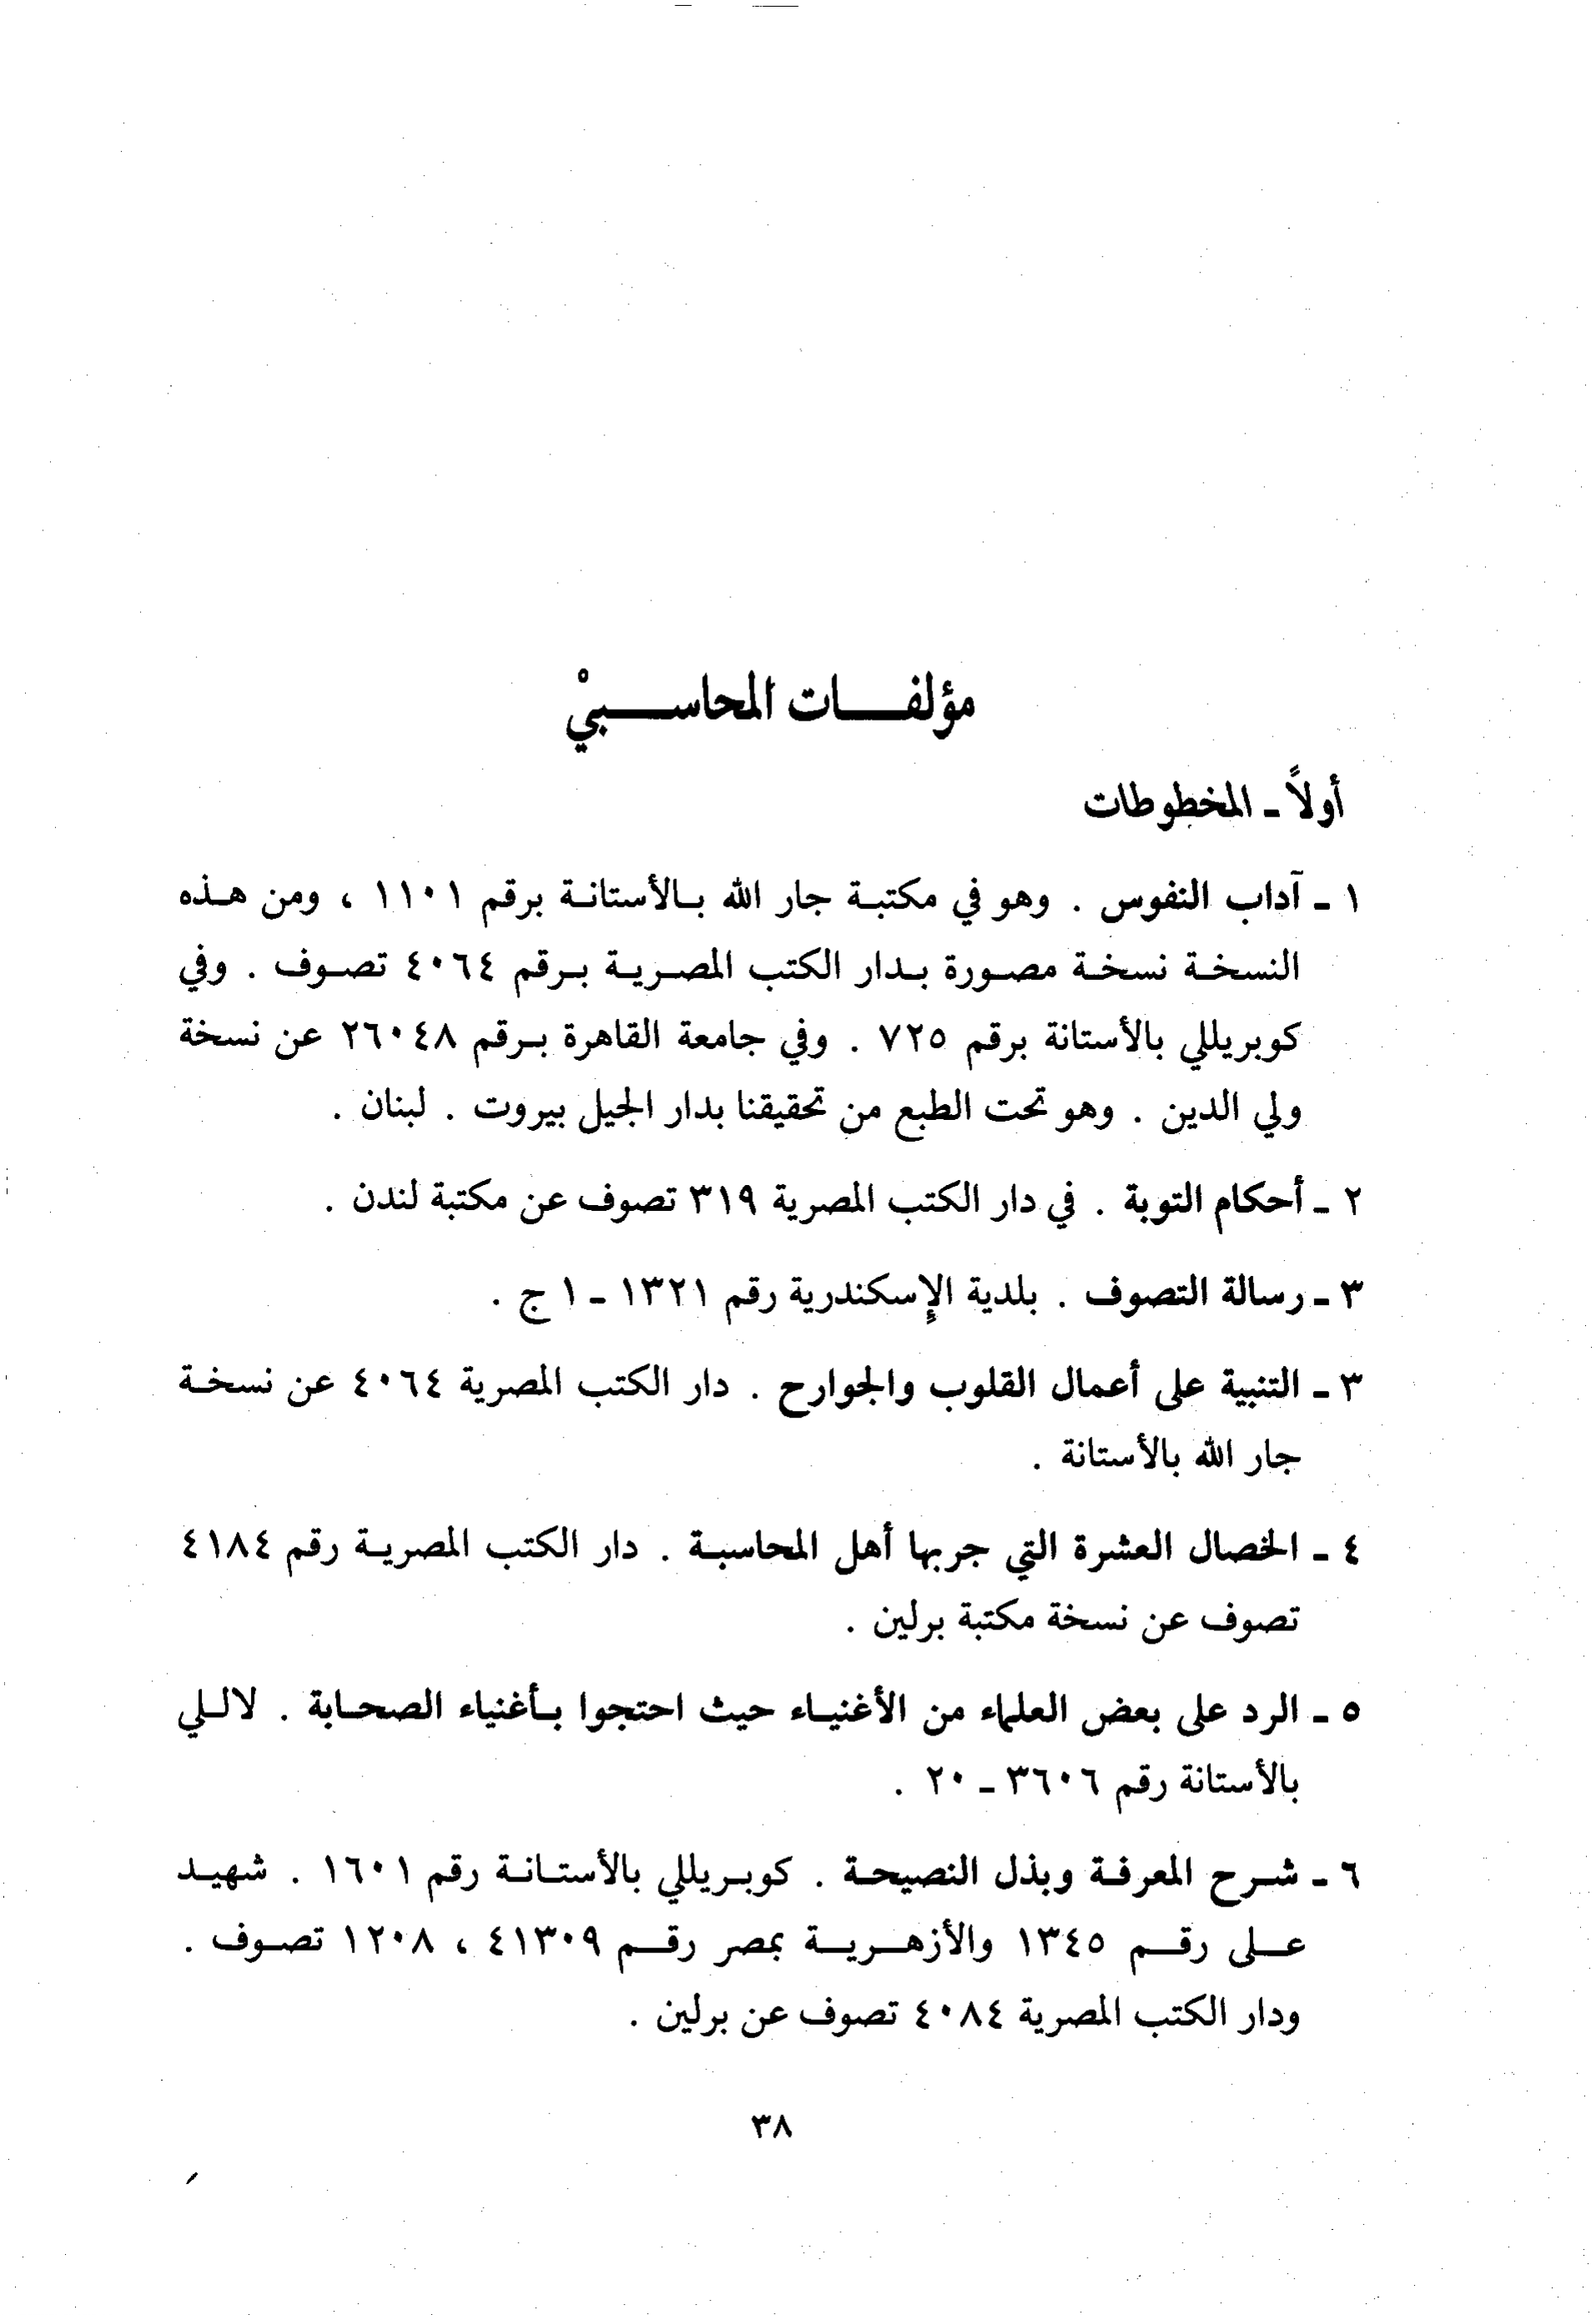 مؤلفات المحاسبيْ
أولاً - المخطوطات
١ - آداب النفوس . وهو في مكتبة جار الله بالأستانة برقم ١١٠١ ، ومن هذه
النسخة نسخة مصورة بدار الكتب المصرية برقم ٤٠٦٤ تصوف . وفي
كوبريللي بالأستانة برقم ٧٢٥ . وفي جامعة القاهرة برقم ٢٦٠٤٨ عن نسخة
ولي الدين . وهو تحت الطبع من تحقيقنا بدار الجيل بيروت . لبنان .
٢ - أحكام التوبة . في دار الكتب المصرية ٣١٩ تصوف عن مكتبة لندن .
٣ - رسالة التصوف . بلدية الإسكندرية رقم ١٣٢١ - ١ ج .
٣ - التنبية على أعمال القلوب والجوارح . دار الكتب المصرية ٤٠٦٤ عن نسخة
جار الله بالأستانة .
٤ - الخصال العشرة التي جربها أهل المحاسبة . دار الكتب المصرية رقم ٤١٨٤
تصوف عن نسخة مكتبة برلين .
٥ - الرد على بعض العلماء من الأغنياء حيث احتجوا بأغنياء الصحابة . لاللي
بالأستانة رقم ٣٦٠٦ - ٢٠ .
٦ - شرح المعرفة وبذل النصيحة . كوبريللي بالأستانة رقم ١٦٠١ . شهيد
على رقم ١٣٤٥ والأزهرية بمصر رقم ٤١٣٠٩ ، ١٢٠٨ تصوف .
ودار الكتب المصرية ٤٠٨٤ تصوف عن برلين .
٣٨